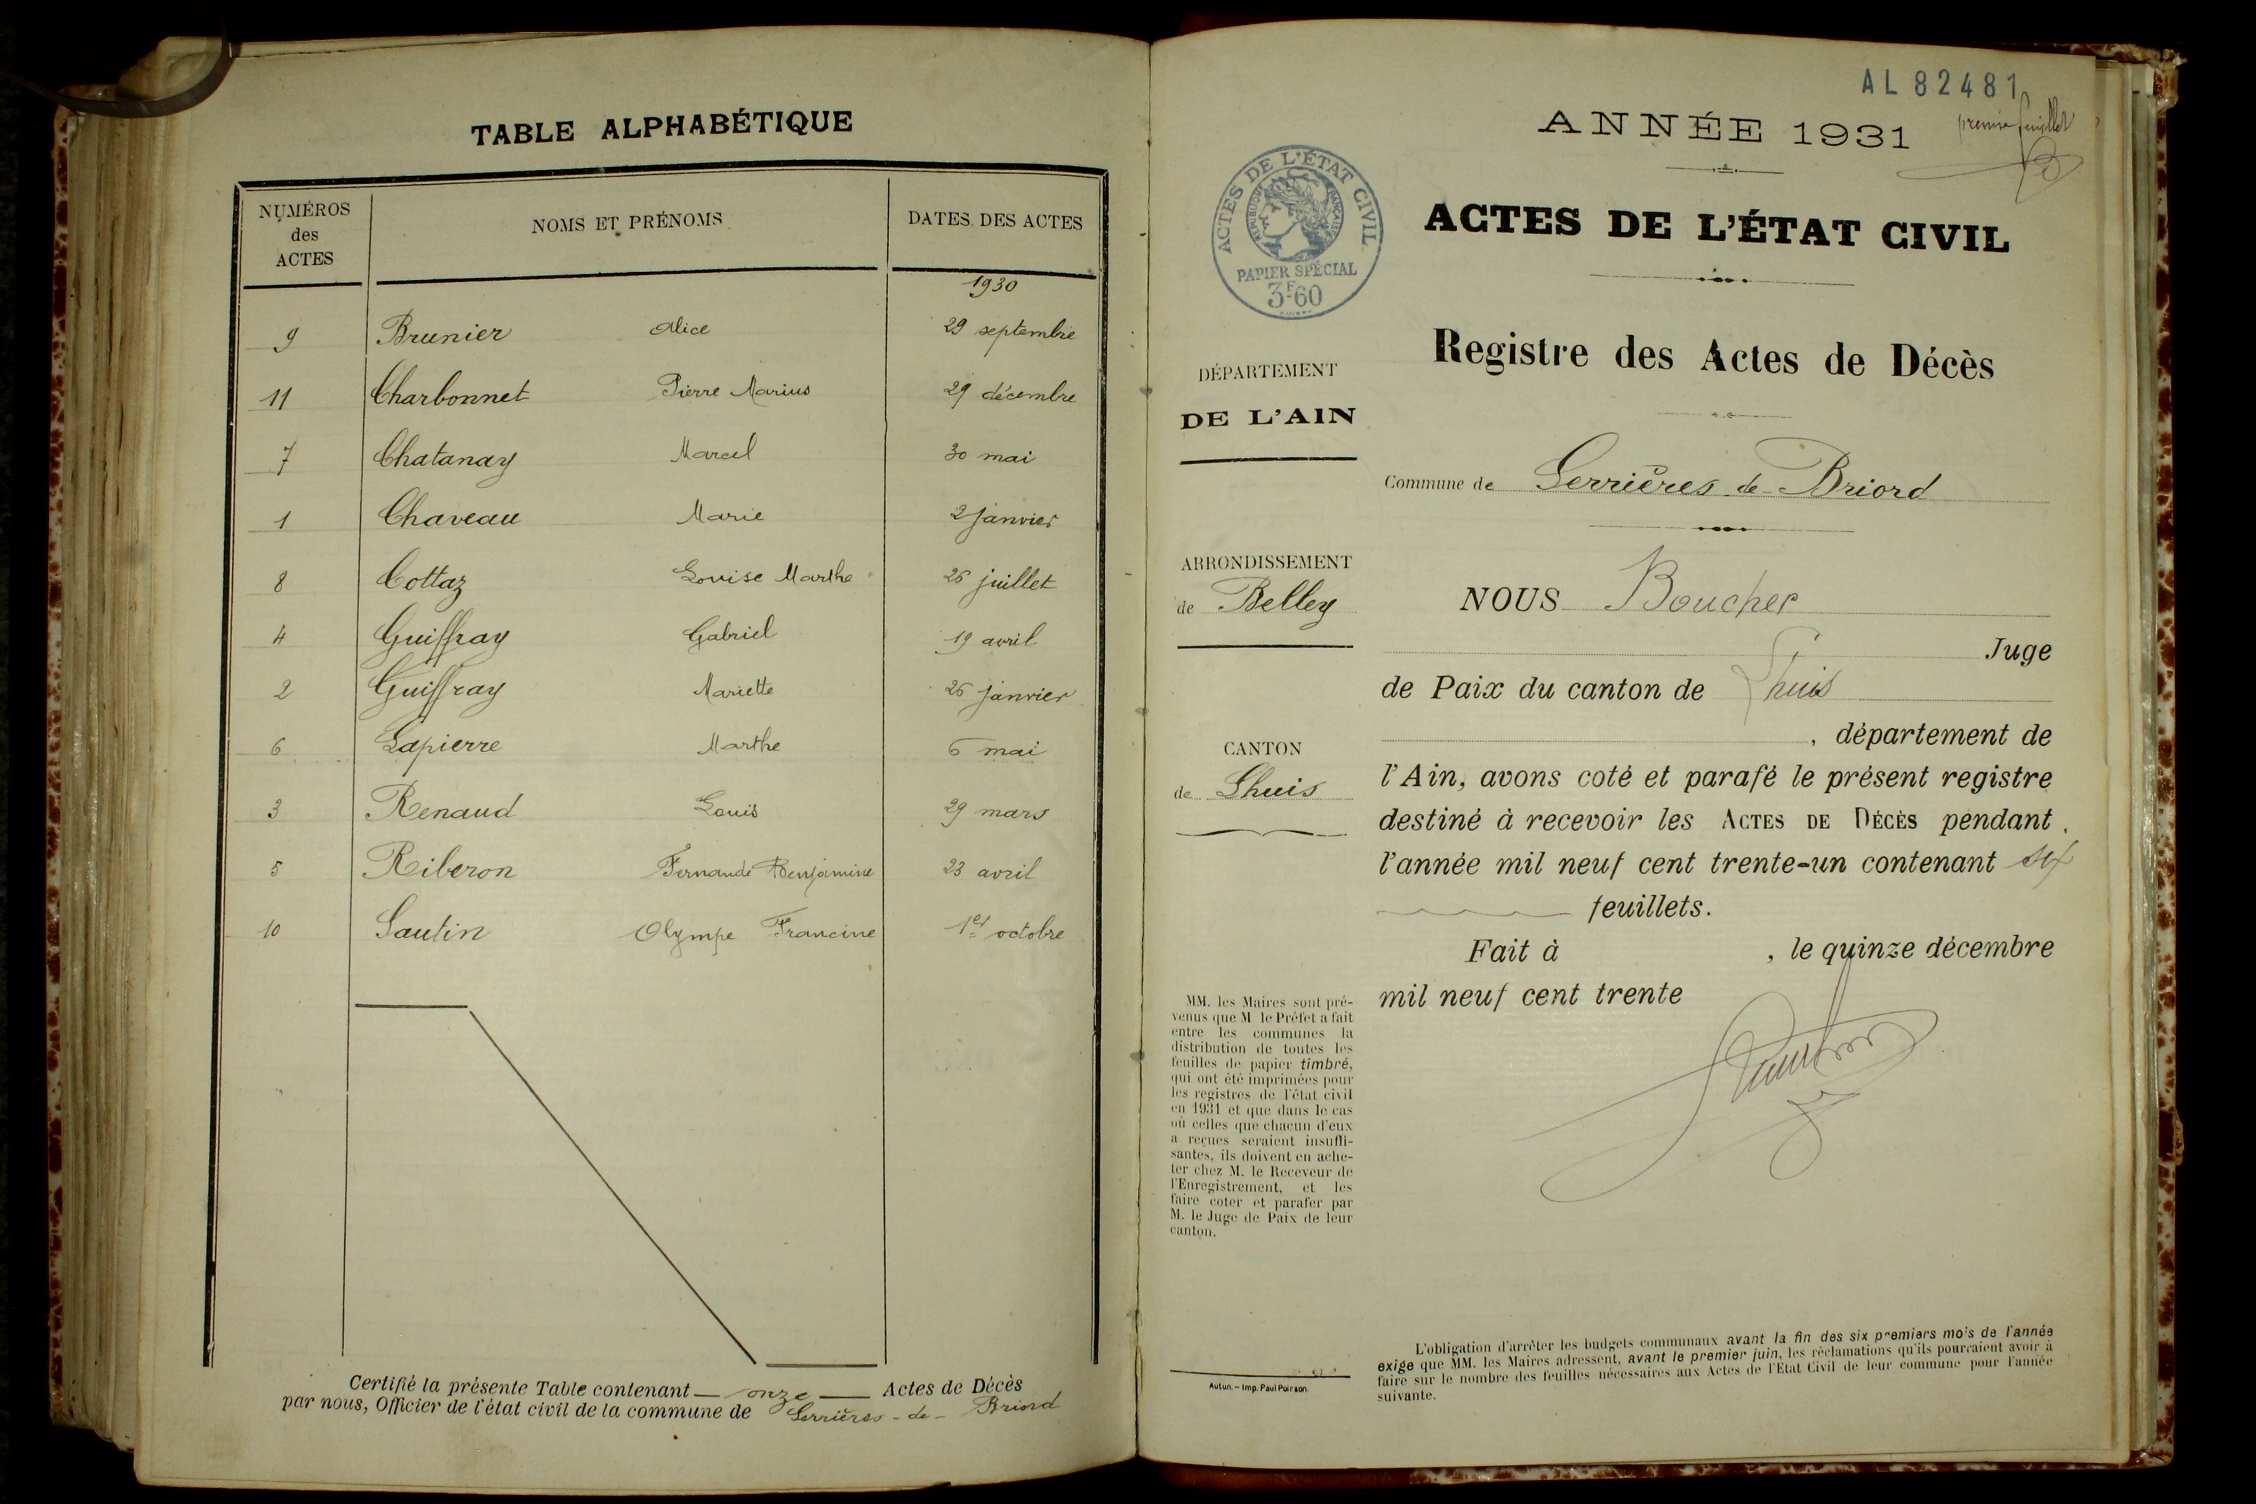 TABLE ALPHABÉTIQUE
NUMÉROS
des
ACTES
NOMS ET PRÉNOMS
DATES DES ACTES
1930
9 Brunier Alice 29 septembre
11 Charbonnet Pierre Marius 29 décembre
7 Chatanay Marcel 30 mai
1 Chaveau Marie 2 janvier
8 Cottaz Louise Marthe 26 juillet
4 Guiffray Gabriel 19 avril
2 Guiffray Mariette 26 janvier
6 Lapierre Marthe 6 mai
3 Renaud Louis 29 mars
5 Riberon Fernande Benjamine 23 avril
10 Sautin Olympe Francine 1er octobre
Certifié la présente Table contenant onze Actes de Décès
par nous, Officier de l'état civil de la commune de Serrières-de-Briord
AL 82481
premier feuillet
ANNÉE 1931
ACTES DE L'ÉTAT CIVIL
RÉPUBLIQUE FRANÇAISE
PAPIER SPÉCIAL
3F60
ACTES DE L'ÉTAT CIVIL
Registre des Actes de Décès
DÉPARTEMENT
DE L'AIN
Commune de Serrières-de-Briord
ARRONDISSEMENT
de Belley
CANTON
de Lhuis
NOUS Boucher
Juge
de Paix du canton de Lhuis
, département de
l'Ain, avons coté et parafé le présent registre
destiné à recevoir les ACTES DE DÉCÈS pendant
l'année mil neuf cent trente-un contenant six
feuillets.
Fait à , le quinze décembre
mil neuf cent trente
MM. les Maires sont pré-
venus que M. le Préfet a fait
entre les communes la
distribution de toutes les
feuilles de papier timbré,
qui ont été imprimées pour
les registres de l'état civil
en 1931 et que dans le cas
où celles que chacun d'eux
a reçues seraient insuffi-
santes, ils doivent en ache-
ter chez M. le Receveur de
l'Enregistrement, et les
faire coter et parafer par
M. le Juge de Paix de leur
canton.
Autun. - Imp. Paul Poirson
L'obligation d'arrêter les budgets communaux avant la fin des six premiers mois de l'année
exige que MM. les Maires adressent, avant le premier juin, les réclamations qu'ils pourraient avoir à
faire sur le nombre des feuilles nécessaires aux Actes de l'Etat Civil de leur commune pour l'année
suivante.